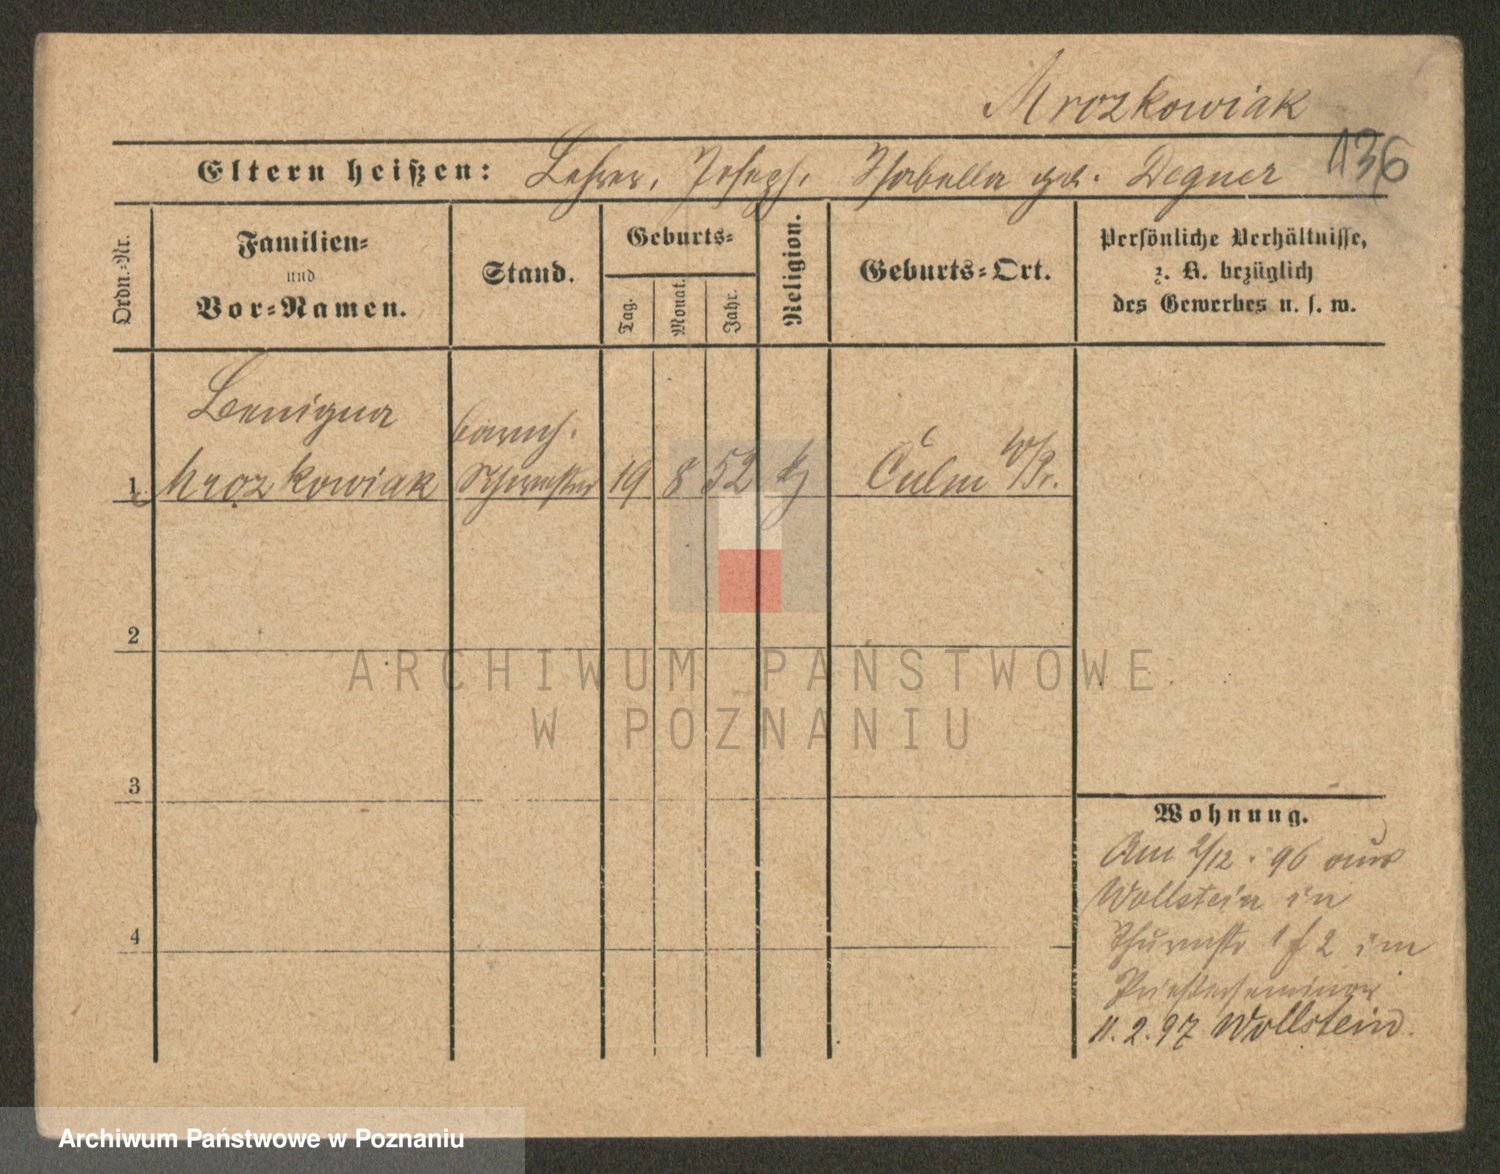 Mrozkowiak
136
Eltern heißen: Lehrer, Joseph, Isabella geb. Degner
Ordn.-Nr.
Familien-
und
Vor-Namen.
Stand.
Geburts-
Tag.
Monat.
Jahr.
Religion.
Geburts-Ort.
Persönliche Verhältnisse,
z. B. bezüglich
des Gewerbes u. s. w.
Benigna
barmh.
1 Mrozkowiak Schwester 19 8 52 k Culm W/Pr.
2
3
4
Wohnung.
Am 2/12. 96 aus
Wollstein in
1 f 2 im
Priesterseminar
11.2.97 Wollstein.
ARCHIWUM PAŃSTWOWE
W POZNANIU
Archiwum Państwowe w Poznaniu